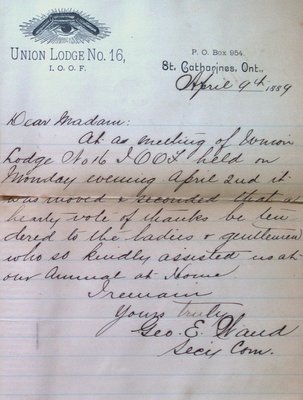 UNION LODGE NO. 16,
I. O. O. F.
P. O. BOX 954.
St. Catharines, Ont.,
April 9th 1889
Dear Madam:
At as meeting of Union
Lodge No 16 I O O F held on
Monday evening April 2nd it
was moved & seconded that a
hearty vote of thanks be ten
dered to the ladies & gentlemen
who so kindly assisted us at
our Annual at Home
I remain
Yours truly
Geo. E. Waud
Secy Com.